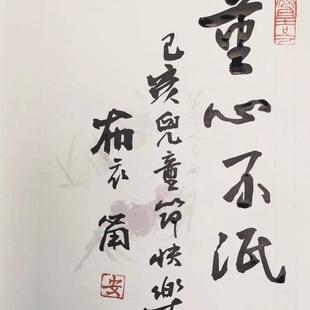 童心不泯
己亥兒童節快樂
布衣
安